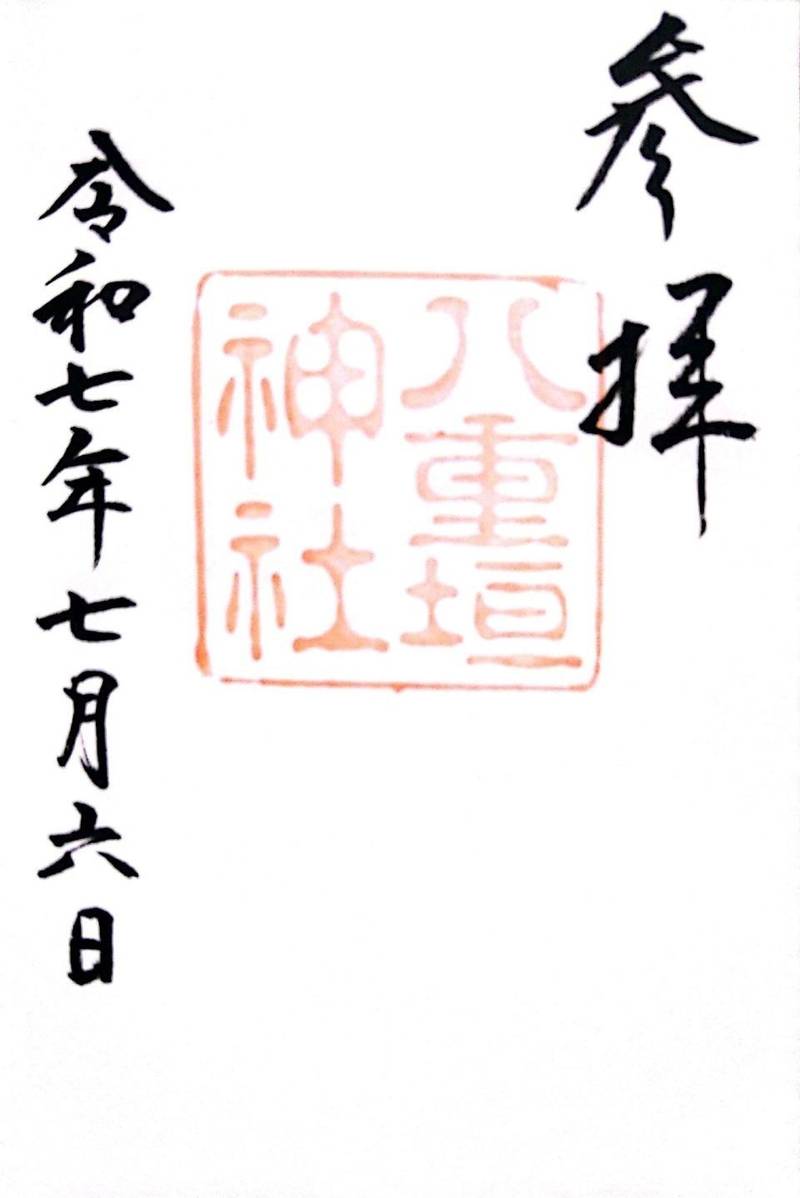 参拝
八重垣
神社
令和七年七月六日